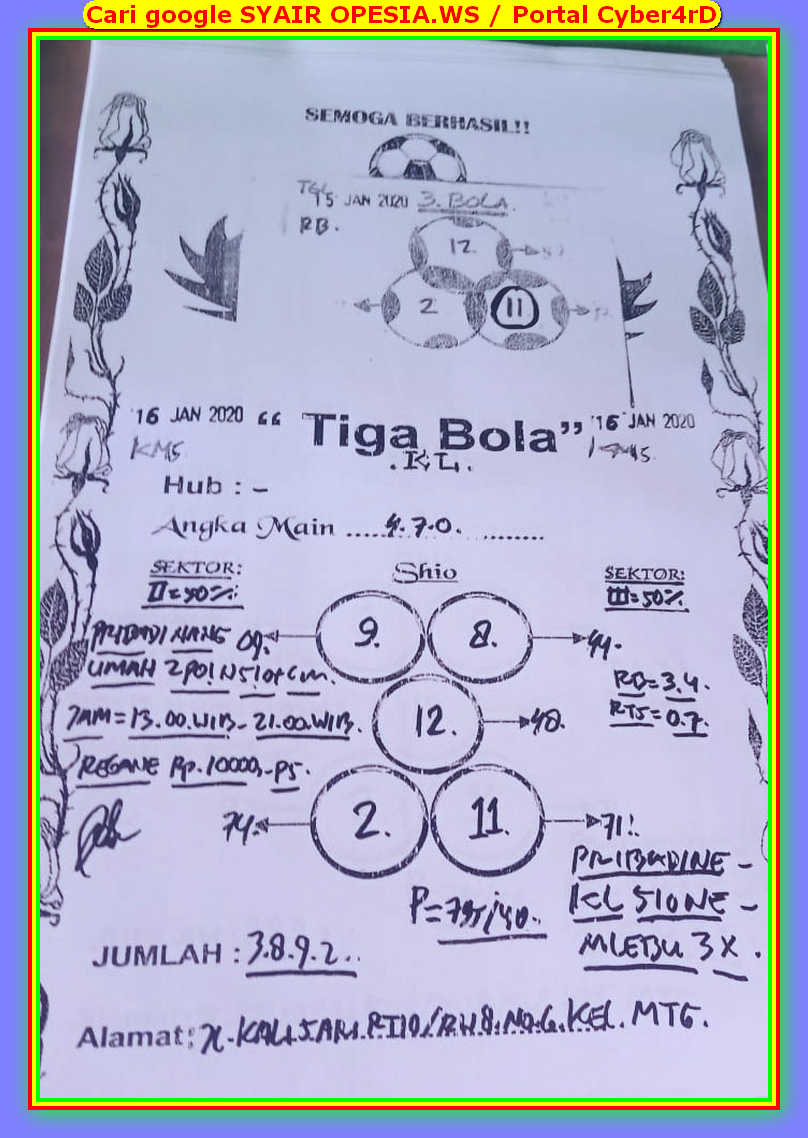 Cari google SYAIR OPESIA.WS / Portal Cyber4rD
SEMOGA BERHASIL!!
TGL 15 JAN 2020 3. BOLA.
RB.
12
2 11
16 JAN 2020 “ Tiga Bola” 16 JAN 2020
KMS
.KL.
Hub : -
Angka Main ..... 4.7.0. .........
SEKTOR: Shio SEKTOR:
II=50% III=50%
PRIBADI NANG 09. 9. 8. 44.
UMAH 2POIN
RB=3.4.
RTS=0.7.
JAM=13.00.WIB-21.00.WIB. 12. 40.
REGANE Rp.10000,-PS.
74. 2. 11. 71!.
PRIBADINE -
KL SIONE -
MLEBU 3X.
JUMLAH : 3.8.9.2..
Alamat: KALISARI.RT10/RW8.NO.6.KEL.MTG.